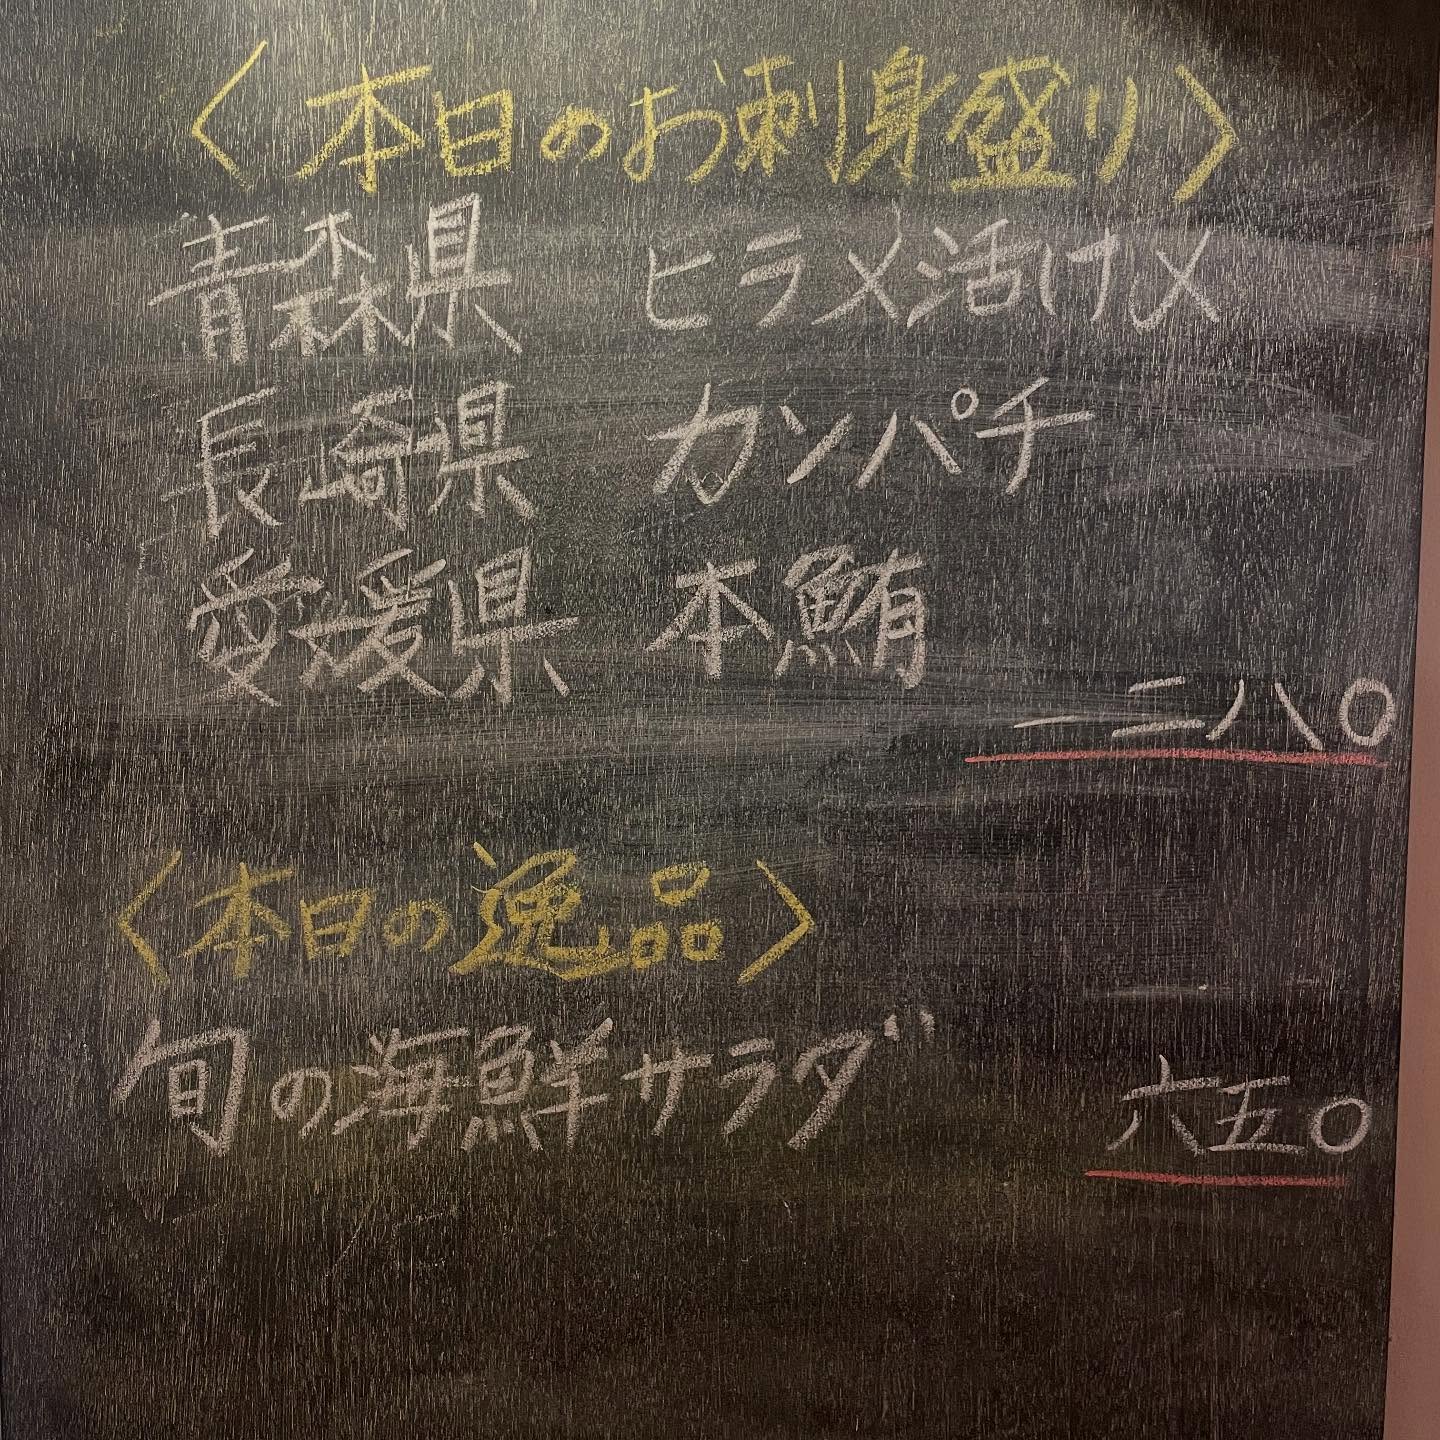 〈本日のお刺身盛り〉
青森県 ヒラメ活け〆
長崎県 カンパチ
愛媛県 本鮪
一二八〇
〈本日の逸品〉
旬の海鮮サラダ 六五〇